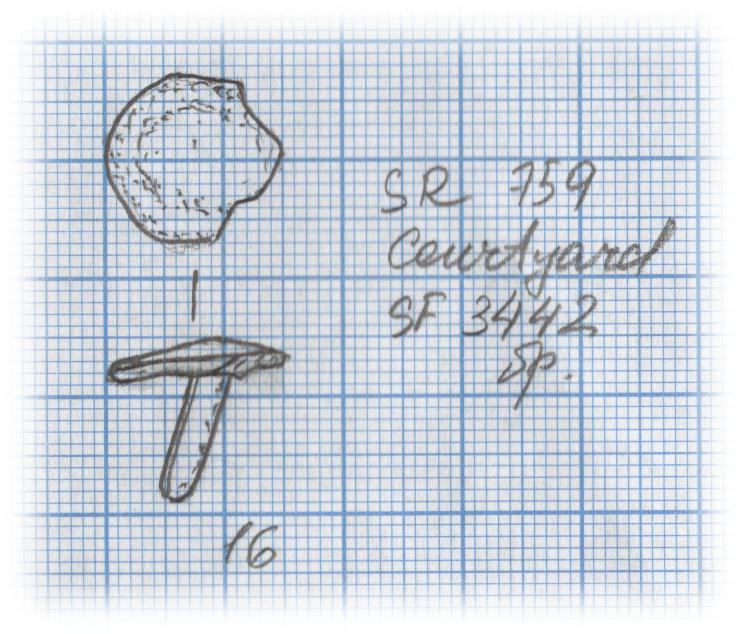 SR 759
Courtyard
SF 3442
бр.
16